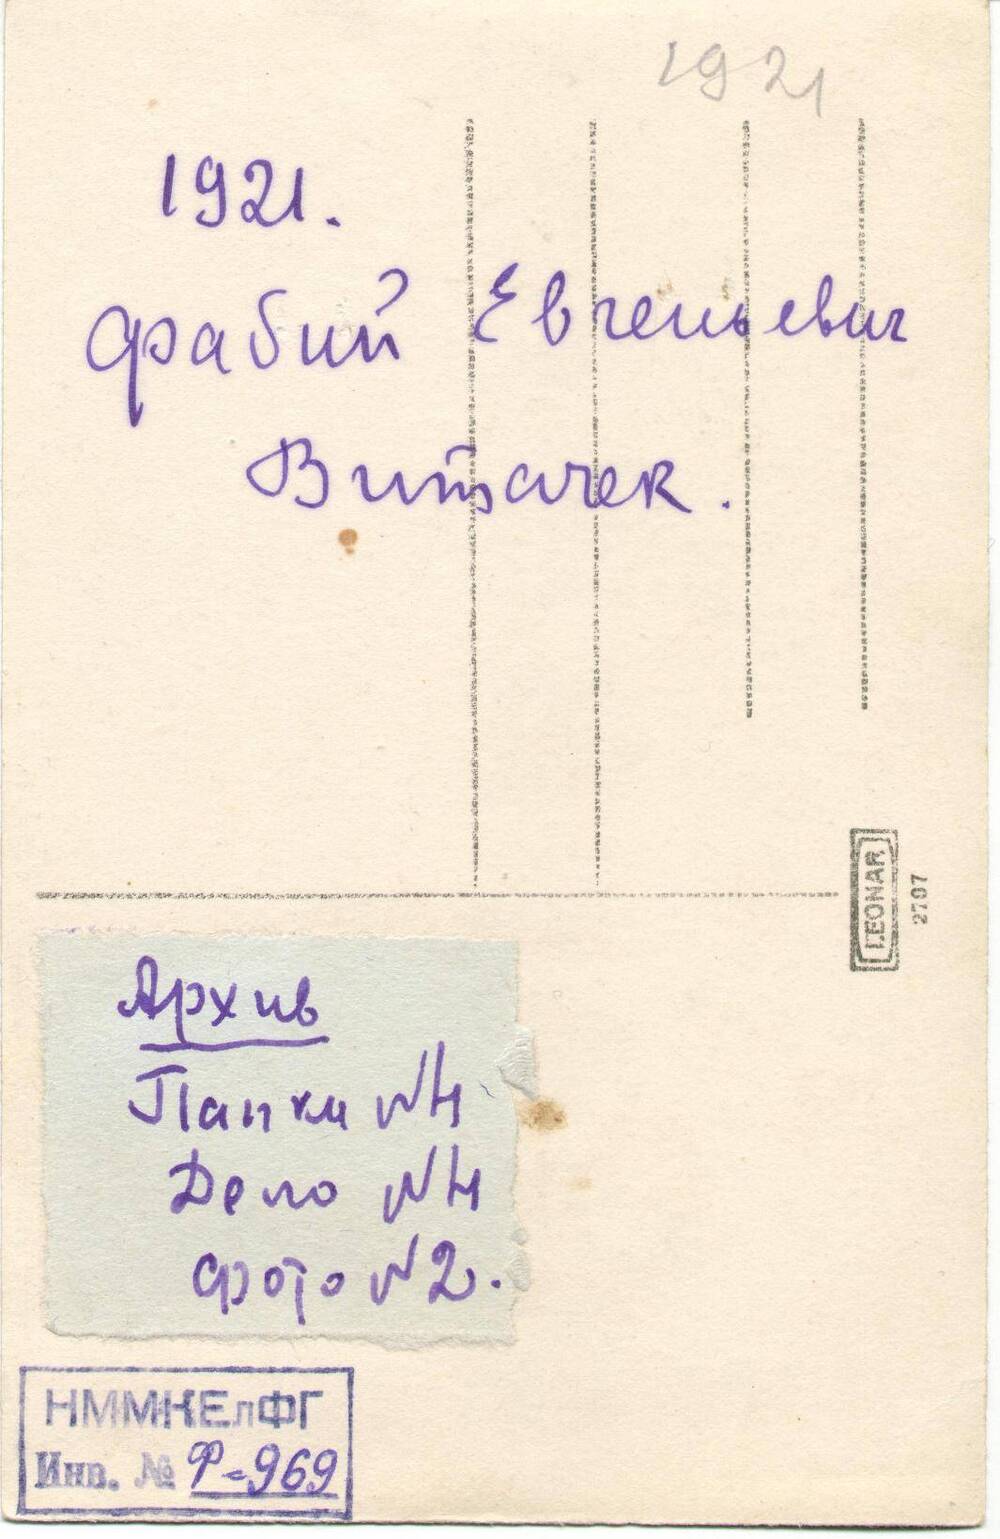 1921
1921.
Фабий Евгеньевич
Витачек.
LEONAR
2707
Архив
Папки №4
Дело №4
Фото №2.
НММКЕлФГ
Инв. № Ф-969